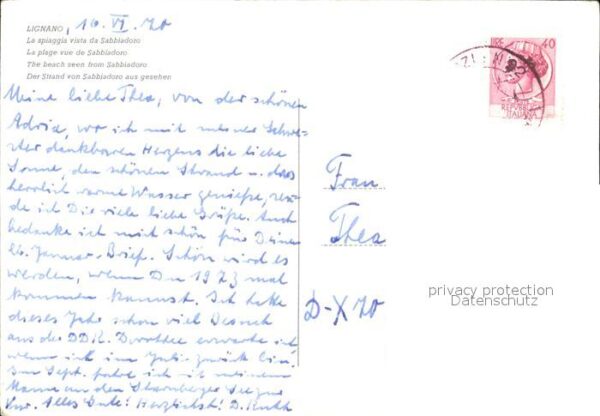 LIGNANO, 16. VI. 70
La spiaggia vista da Sabbiadoro
La plage vue de Sabbiadoro
The beach seen from Sabbiadoro
Der Strand von Sabbiadoro aus gesehen
Meine liebe Thea, von der schönen
Adria, wo ich mit meiner Schwe-
ster dankbaren Herzens die liebe
Sonne, den schönen Strand u. das
herrlich warme Wasser genieße, sen-
de ich Dir viele liebe Grüße. Auch
bedanke ich mich schön für Deinen
26. Januar-Brief. Schön wird es
werden, wenn Du 1973 mal
kommen kannst. Ich hatte
dieses Jahr schon viel Besuch
aus der DDR. Dorothee erwarte ich
wenn ich im Juli zurück bin.
Im Sept. fahre ich mit meinem
Manne an den Starnberger See zur
Kur. Alles Gute! Herzlichst! D. Ruth
40
REPUBBLICA
ITALIANA
Frau
Thea
D-X 70
privacy protection
Datenschutz